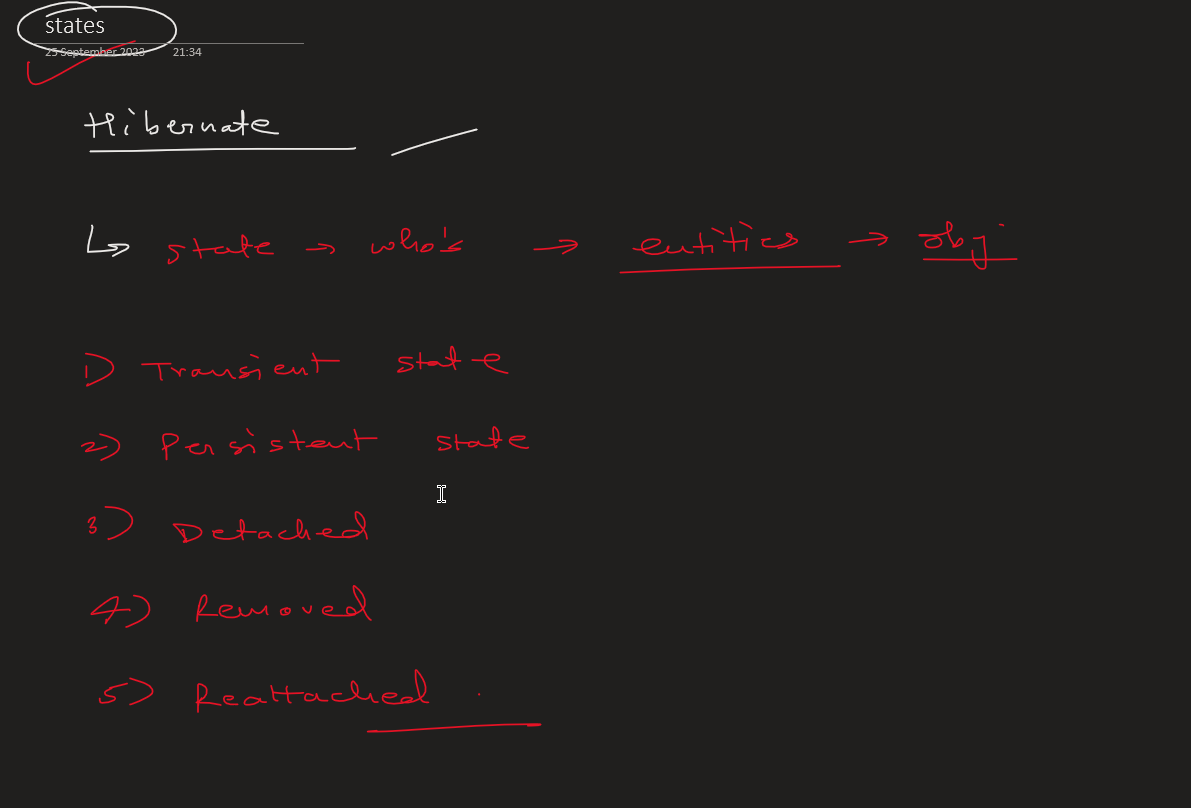 states
25 September 2023 21:34
Hibernate
↳ state → who's → entities → obj
1) Transient state
2) Persistent state
3) Detached
4) Removed
5) Reattached .